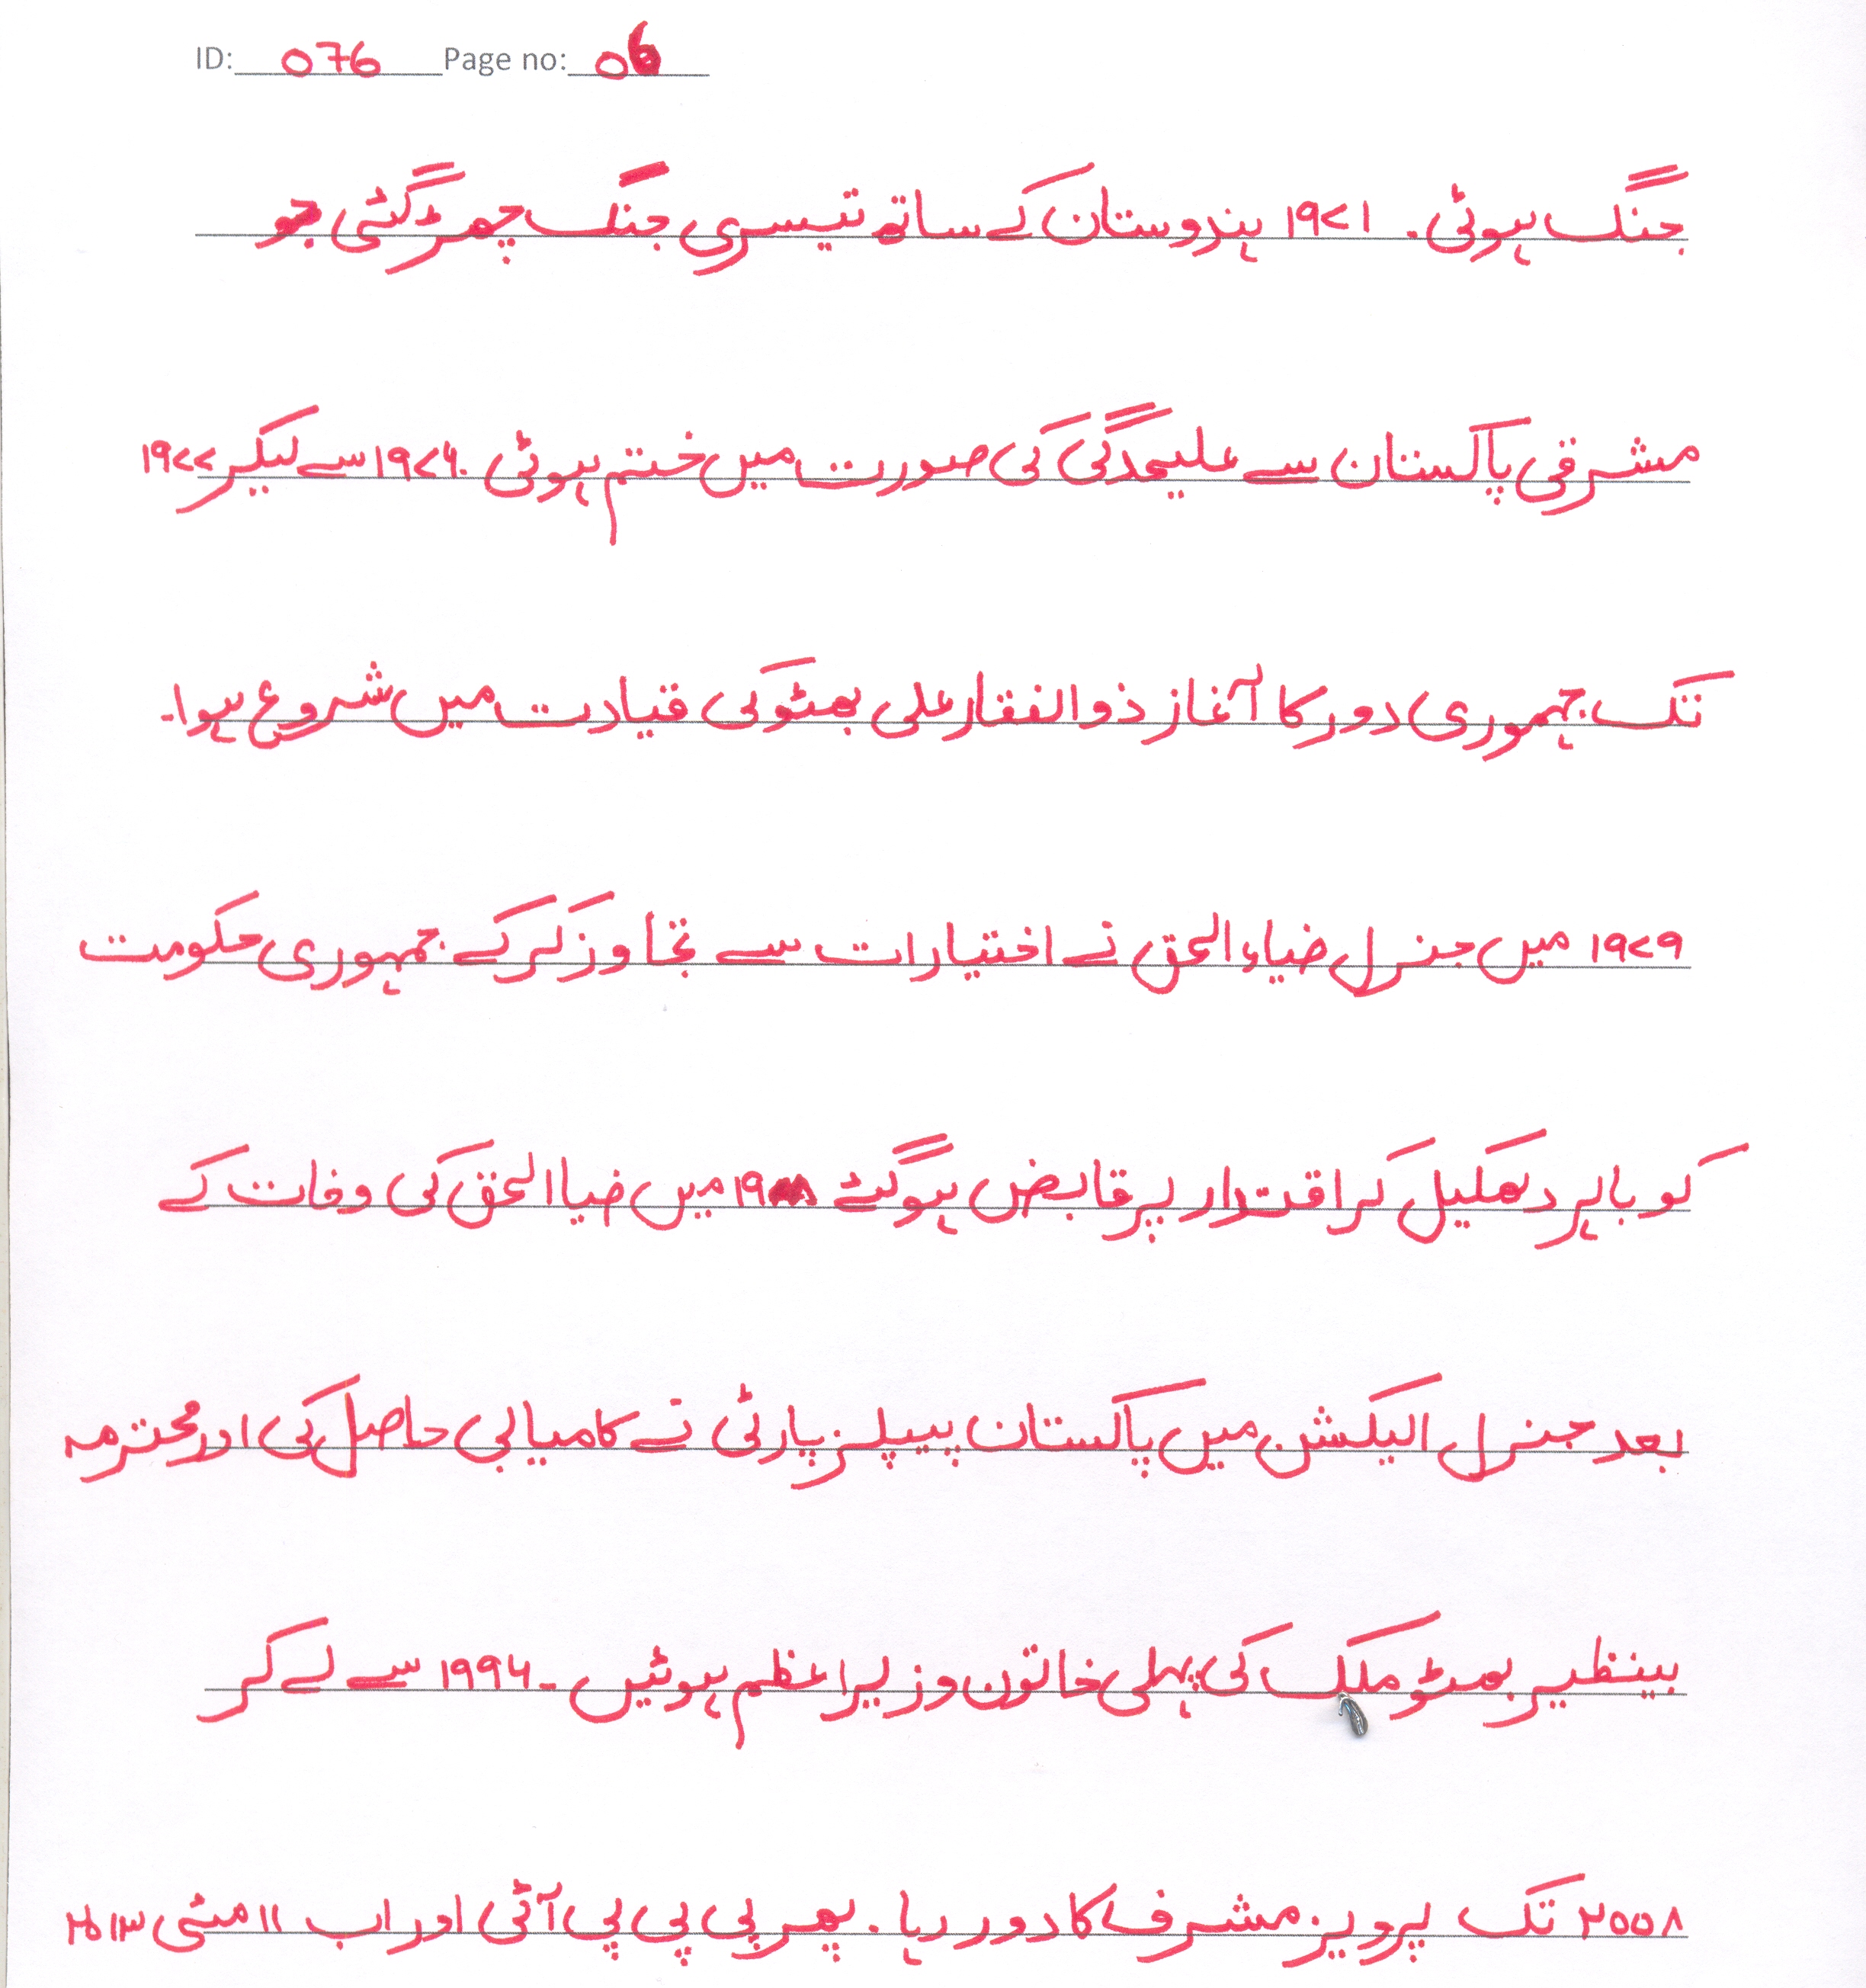 ID: 076 Page no: 06
جنگ ہوئی۔ ۱۹۷۱ ہندوستان کے ساتھ تیسری جنگ چھڑ گئی جو
مشرقی پاکستان سے علیحدگی کی صورت میں ختم ہوئی۔ ۱۹۷۶ سے لیکر ۱۹۷۷
تک جمہوری دور کا آغاز ذوالفقار علی بھٹو کی قیادت میں شروع ہوا۔
۱۹۷۹ میں جنرل ضیاء الحق نے اختیارات سے تجاوز کر کے جمہوری حکومت
کو باہر دھکیل کر اقتدار پر قابض ہو گئے میں ضیاالحق کی وفات کے
بعد جنرل الیکشن میں پاکستان پیپلز پارٹی نے کامیابی حاصل کی اور محترمہ
بینظیر بھٹو ملک کی پہلی خاتون وزیراعظم ہوئیں۔ ۱۹۹۶ سے لے کر
۲۰۰۸ تک پرویز مشرف کا دور رہا۔ پھر پی پی پی آئی اور اب ۱۱ مئی ۲۰۱۳